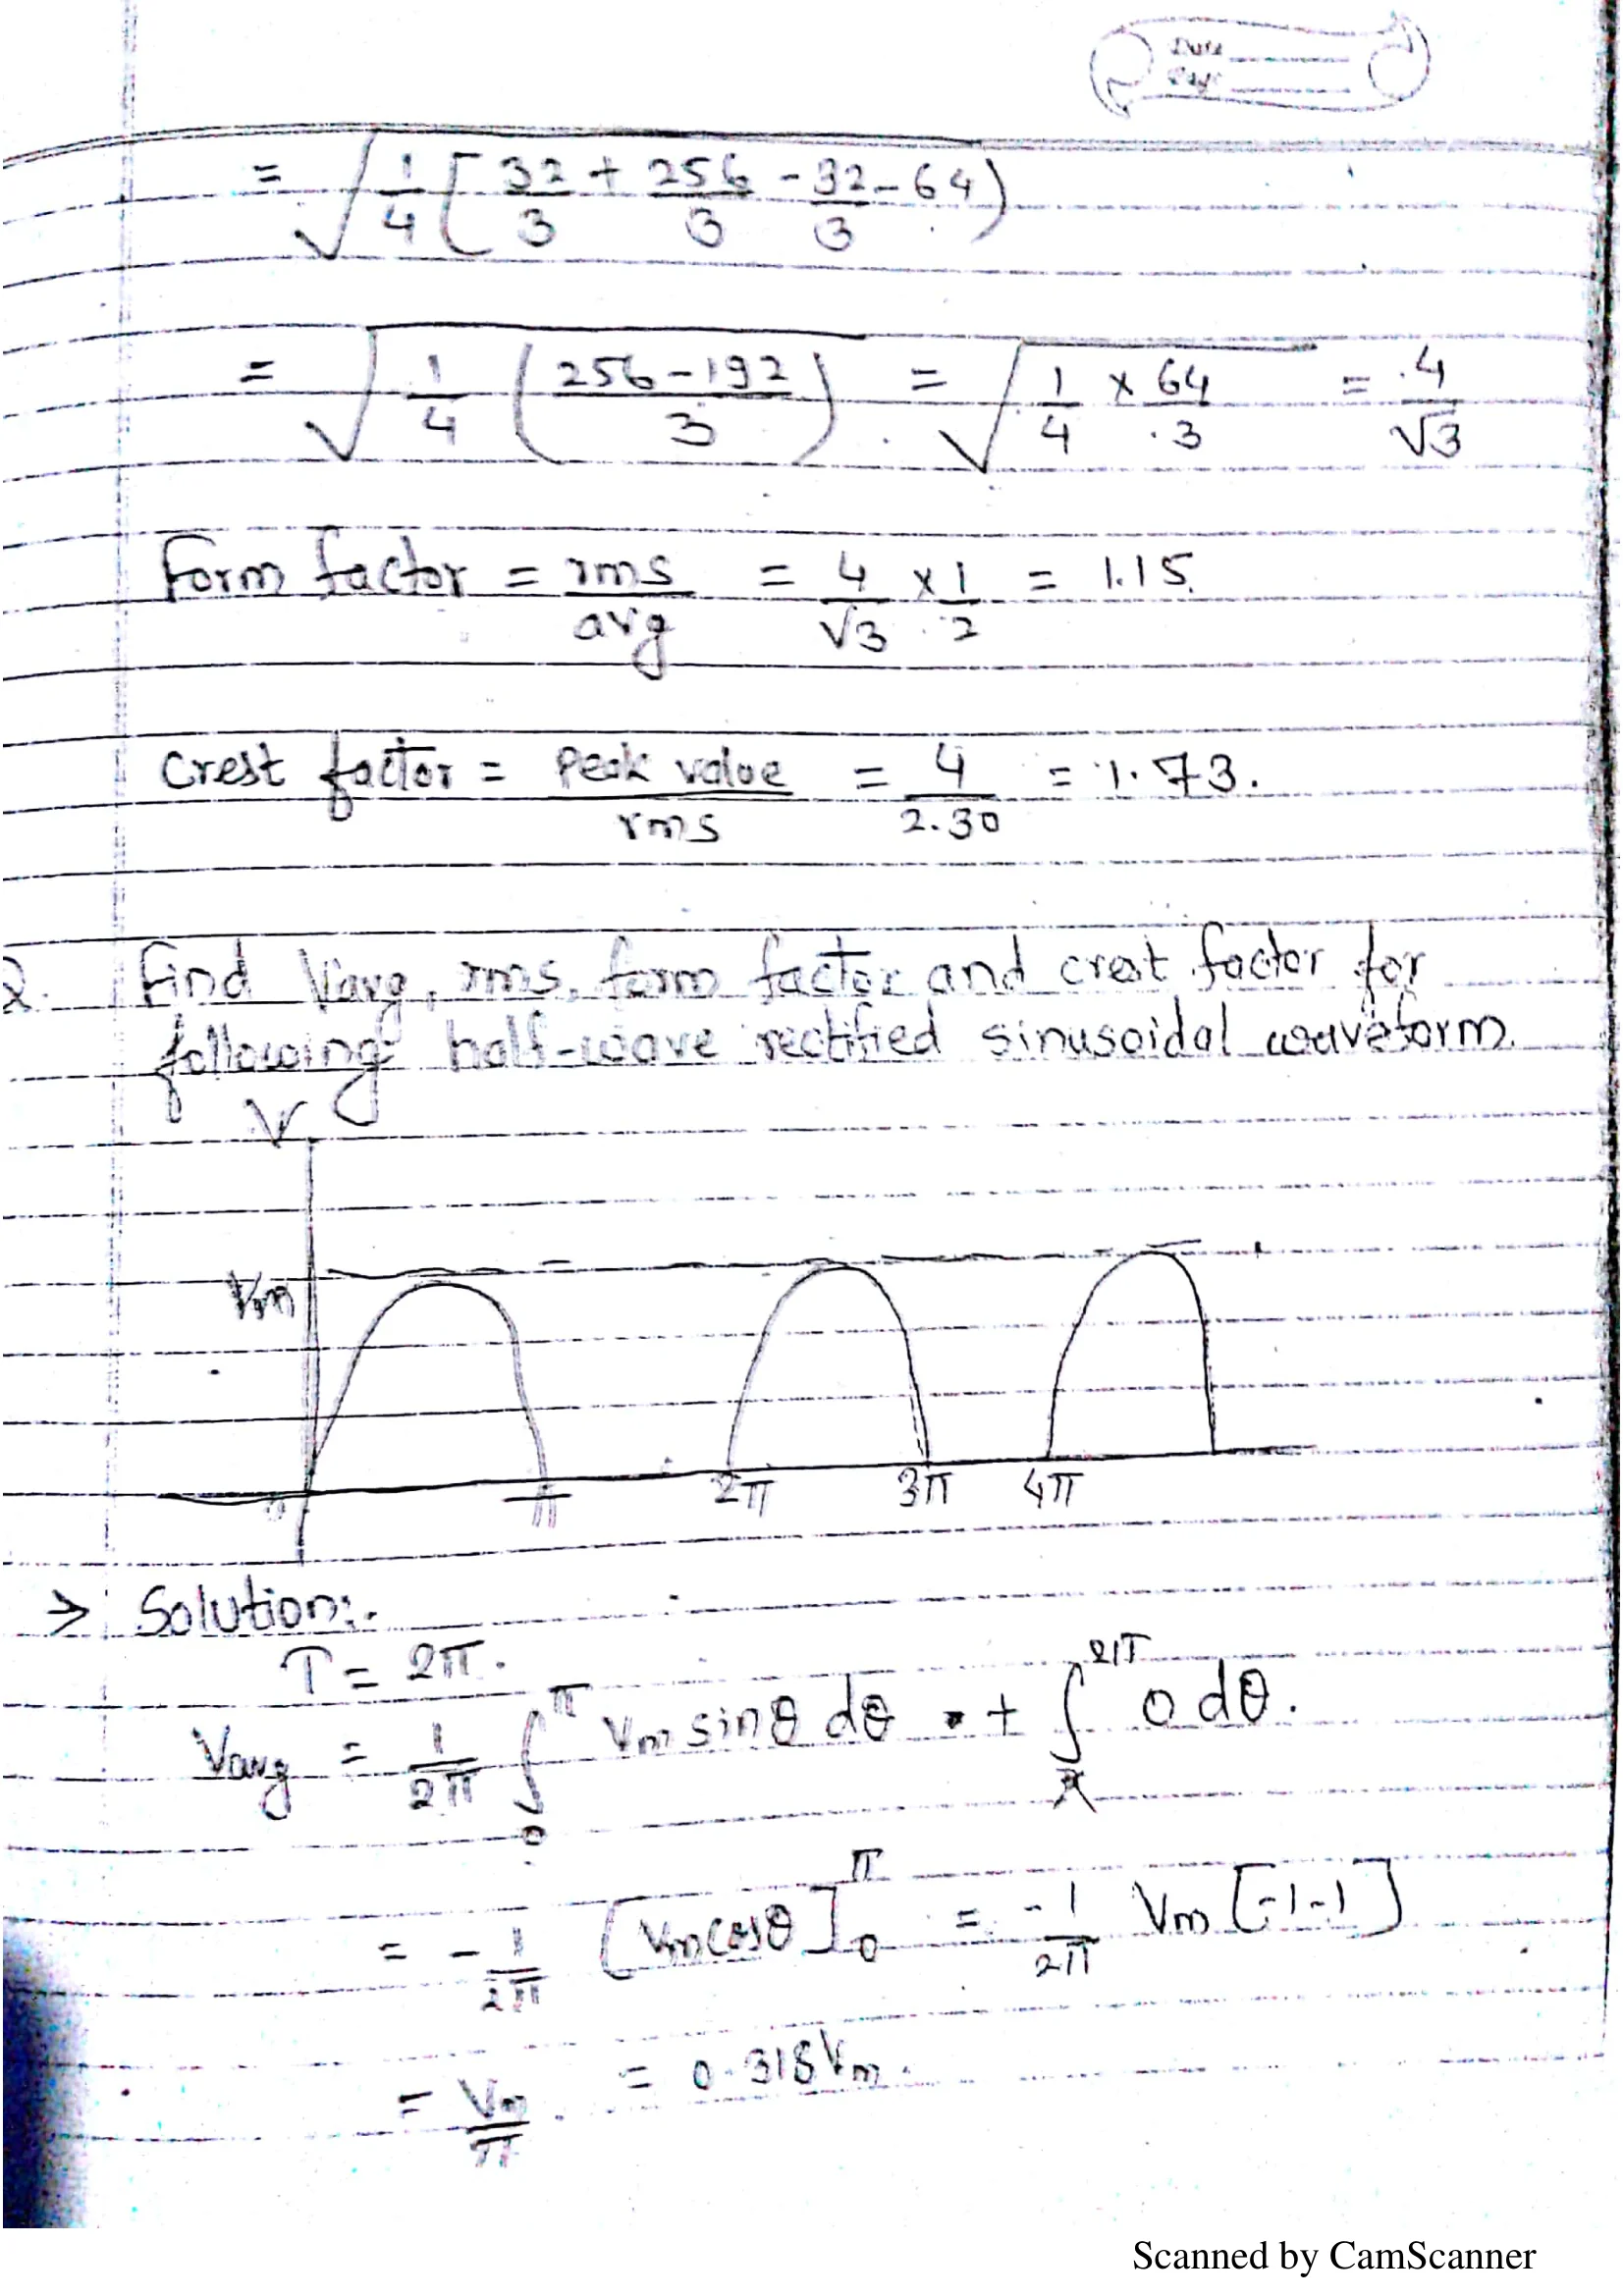 Date
Page
= √ 1/4 [ 32/3 + 256/3 - 32/3 - 64 )
= √ 1/4 ( 256-192 / 3 ) . = √ 1/4 × 64/3 = 4/√3
Form factor = rms/avg = 4/√3 × 1/2 = 1.15
Crest factor = Peak value/rms = 4/2.30 = 1.73.
2. Find Vavg, rms, form factor and crest factor for
following half-wave rectified sinusoidal waveform.
V
Vm
0 π 2π 3π 4π
→ Solution:-
T = 2π.
Vavg = 1/2π ∫₀^π Vm sinθ dθ + ∫_π^2π 0 dθ.
= - 1/2π [Vm cosθ]₀^π = -1/2π Vm [-1-1]
= Vm/π = 0.318Vm.
Scanned by CamScanner